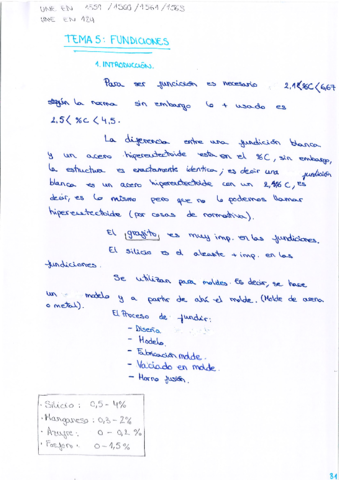 UNE EN 1559 / 1560 / 1561 / 1563
UNE EN 124
TEMA 5: FUNDICIONES
1. INTRODUCCIÓN.
Para ser función es necesario 2,1<%C<6,67
según la norma sin embargo lo + usado es
2.5<%C<4.5.
La diferencia entre una fundición blanca
y un acero hipereutectoide esta en el %C, sin embargo,
la estructura es exactamente identica; es decir una fundición
blanca es un acero hipereutectoide con un 2,1% C, es
decir, es lo mismo pero que no lo podemos llamar
hipereutectoide (por cosas de normativa).
El grafito, es muy imp. en las fundiciones.
El silicio es el aleante + imp. en las
fundiciones.
Se utilizan para moldes. es decir, se hace
un modelo y a parte de ahí el molde. (Molde de arena
o metal).
El Proceso de fundir:
- Diseño
- Modelo.
- Fabricación molde.
- Vaciado en molde.
- Horno fusión.
· Silicio: 0,5 - 4%
· Manganeso: 0,3 - 2%
· Azufre: 0 - 0,2 %
· Fósforo: 0 - 1,5 %